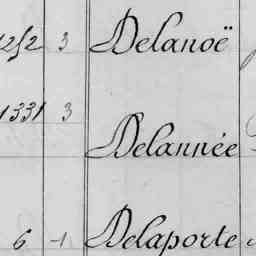 1252 3 Delanoë
1331 3
Delannée
6 1 Delaporte